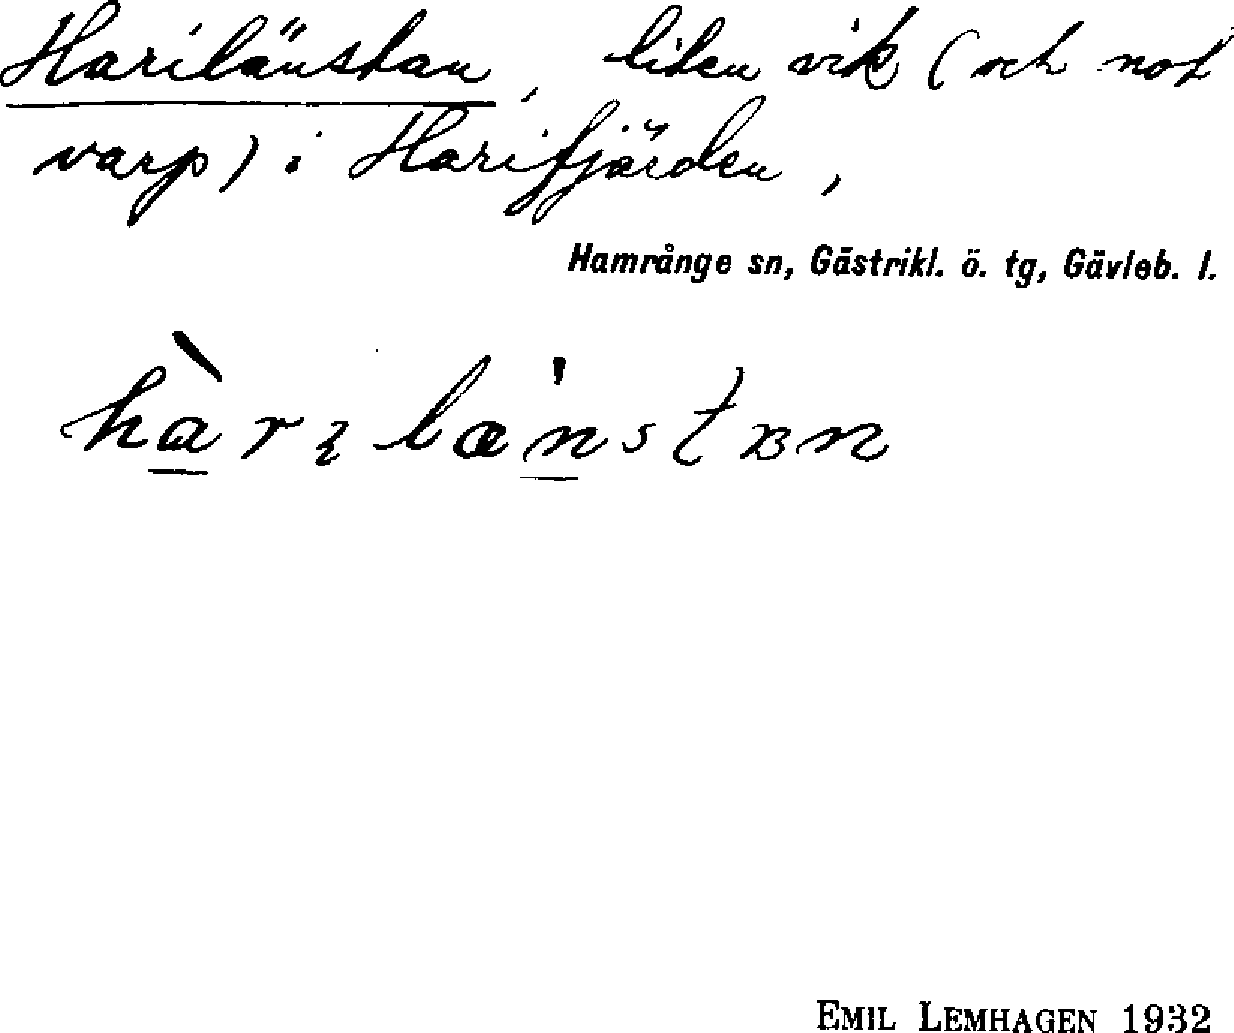 Harilänstan, liten vik (och not
varp) i Harifjärden,
Hamrånge sn, Gästrikl. ö. tg, Gävleb. l.
hàrɩlænstʙn
EMIL LEMHAGEN 1932